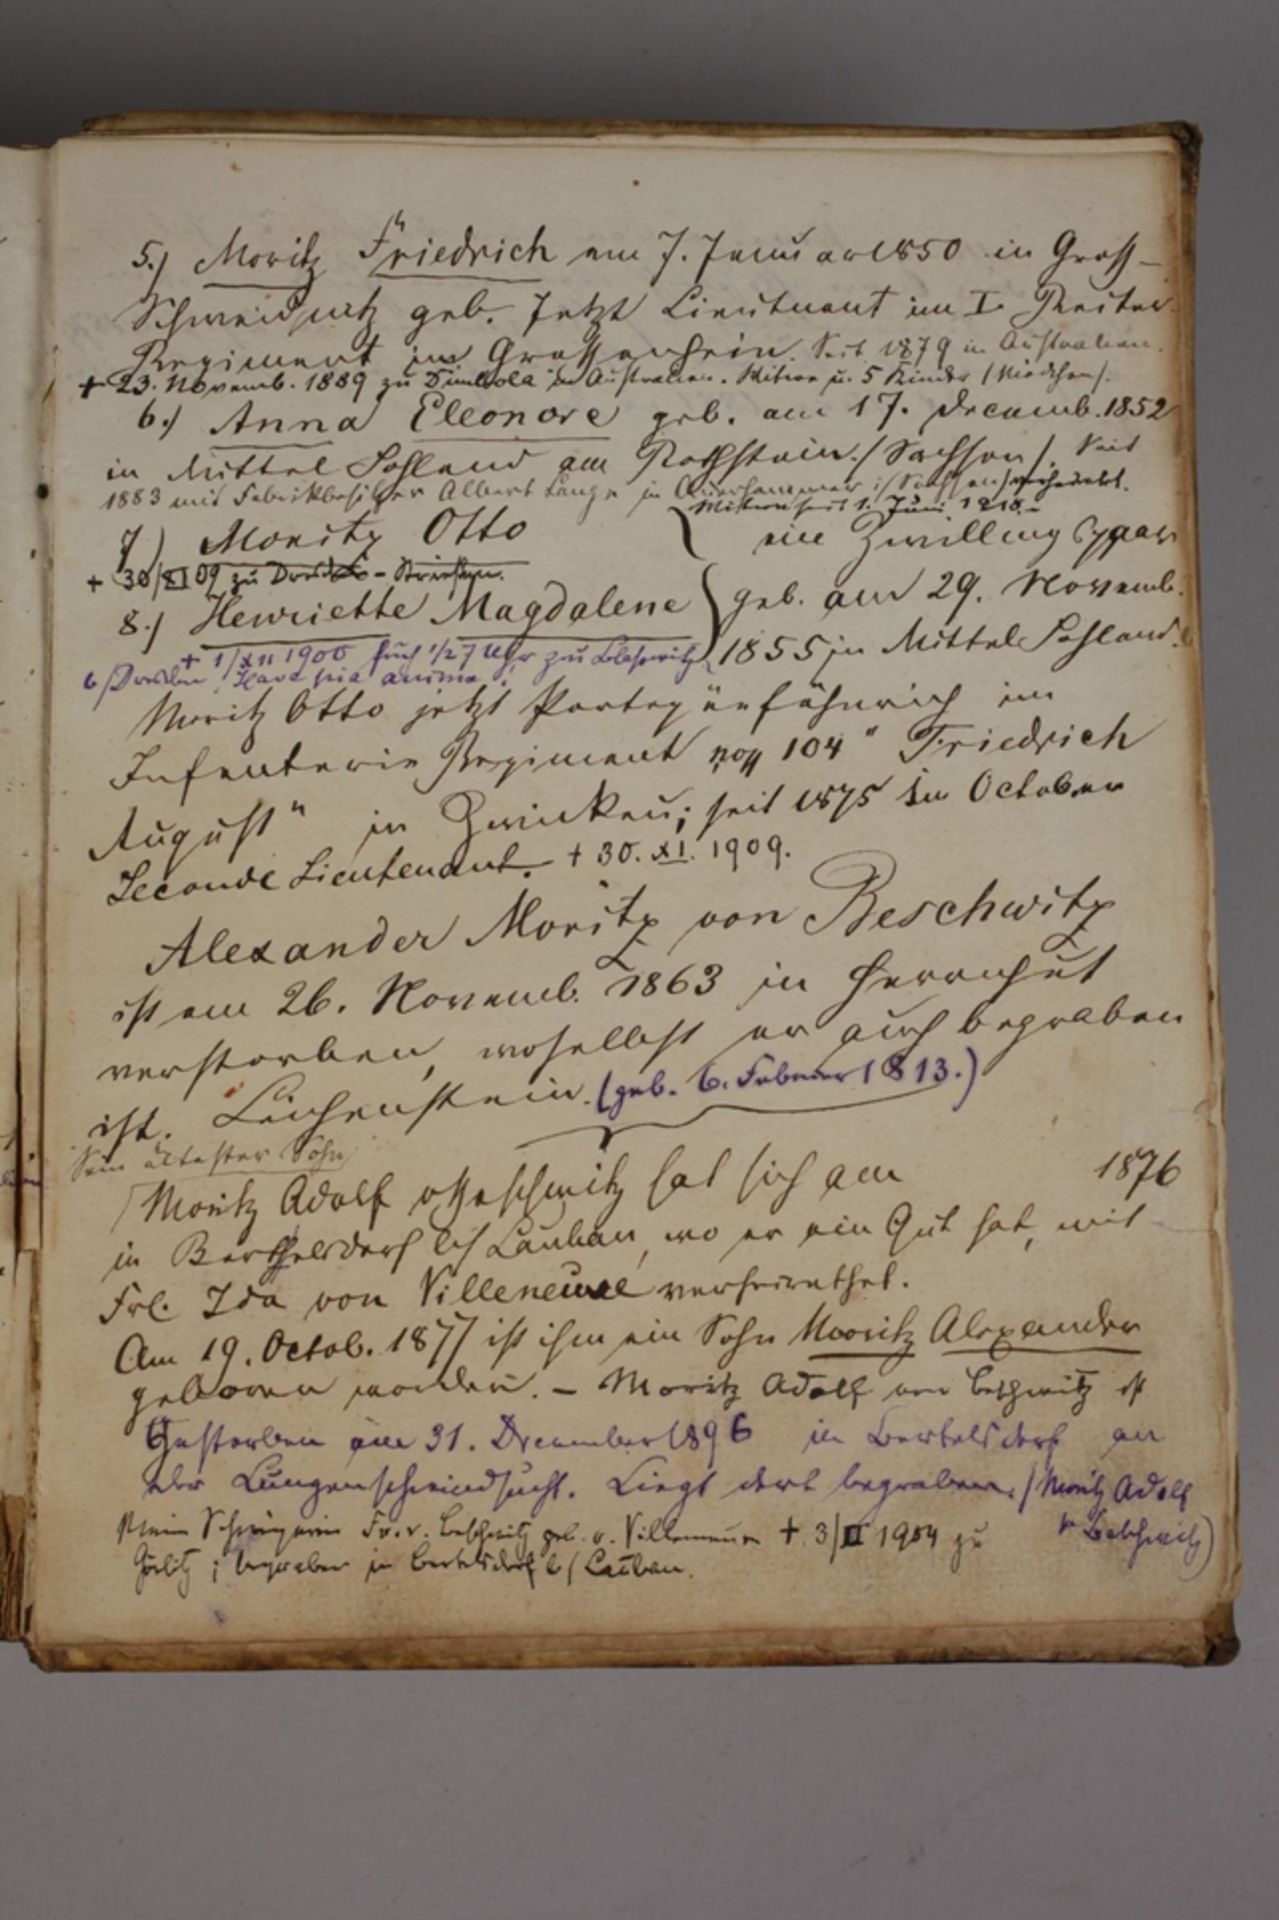 5.) Moritz Friedrich am 7. Januar 1850 in Gross-
Schweidnitz geb. Jetzt Lieutnant im I. Reiter
Regiment in Grossenhein. Seit 1879 in Australien.
+ 23. Novemb. 1889 zu Dimboola in Australien. Witwe u. 5 Kinder (Mädchen).
6.) Anna Eleonore geb. am 17. Decemb. 1852
in Mittel Sohland am Rothstein. (Sachsen). Seit
1883 mit Fabrikbesitzer Albert Lange in i/Sachsen verheiratet.
Witwe seit 1. Juni 1918.
7) Moritz Otto
ein Zwillingspaar
+ 30/XI 09 zu Dresden-Striesen.
8.) Henriette Magdalene
geb. am 29. Novemb.
1855 in Mittel Sohland.
+ 1/XII 1900 früh 1/2 7 Uhr zu Blasewitz
b/Dresden. Have pia anima!
Moritz Otto jetzt Portepéefähnrich im
Infanterie Regiment No 104 "Friedrich
August" in Zwickau; seit 1875 im October
Seconde Lieutenant. + 30. XI. 1909.
Alexander Moritz von Beschwitz
ist am 26. Novemb. 1863 in Herrnhut
verstorben, woselbst er auch begraben
ist. Leichenstein. (geb. 6. Februar 1813.)
Sein ältester Sohn
Moritz Adolf v Beschwitz hat sich am 1876
in Berthelsdorf b/ Lauban, wo er ein Gut hat, mit
Frl. Ida von Villeneuve verheirathet.
Am 19. Octob. 1877 ist ihm ein Sohn Moritz Alexander
geboren worden. - Moritz Adolf von Beschwitz ist
Gestorben am 31. December 1896 in Bertelsdorf an
der Lungenschwindsucht. Liegt dort begraben. (Moritz Adolf
v Beschwitz)
Meine Schwägerin Fr. v. Beschwitz geb. v. Villeneuve + 3/II 1904 zu
Görlitz; begraben in Bertelsdorf b/ Lauban.